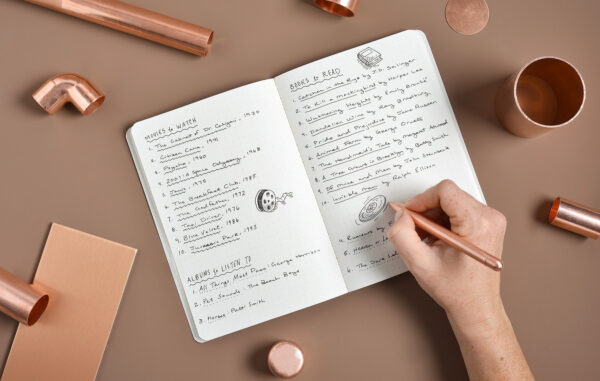 MOVIES to WATCH
1. The Cabinet of Dr. Caligari, 1920
2. Citizen Cane, 1941
3. Psycho, 1960
4. 2001: A Space Odyssey, 1968
5. Jaws, 1975
6. The Breakfast Club, 1985
7. The Godfather, 1972
8. Taxi Driver, 1976
9. Blue Velvet, 1986
10. Jurassic Park, 1993
ALBUMS to LISTEN TO
1. All Things Must Pass - George Harrison
2. Pet Sounds - The Beach Boys
3. Horses - Patti Smith
BOOKS to READ
1. Catcher in the Rye by J.D. Salinger
2. To Kill a mockingbird by Harper Lee
3. Wuthering Heights by Emily Brontë
4. Dandelion Wine by Ray Bradbury
5. Pride and Prejudice by Jane Austen
6. Animal Farm by George Orwell
7. The Handmaid's Tale by Margaret Atwood
8. A Tree Grows in Brooklyn by Betty Smith
9. Of Mice and Men by John Steinbeck
10. Invisible Man by Ralph Ellison
4.
5.
6. The Dark